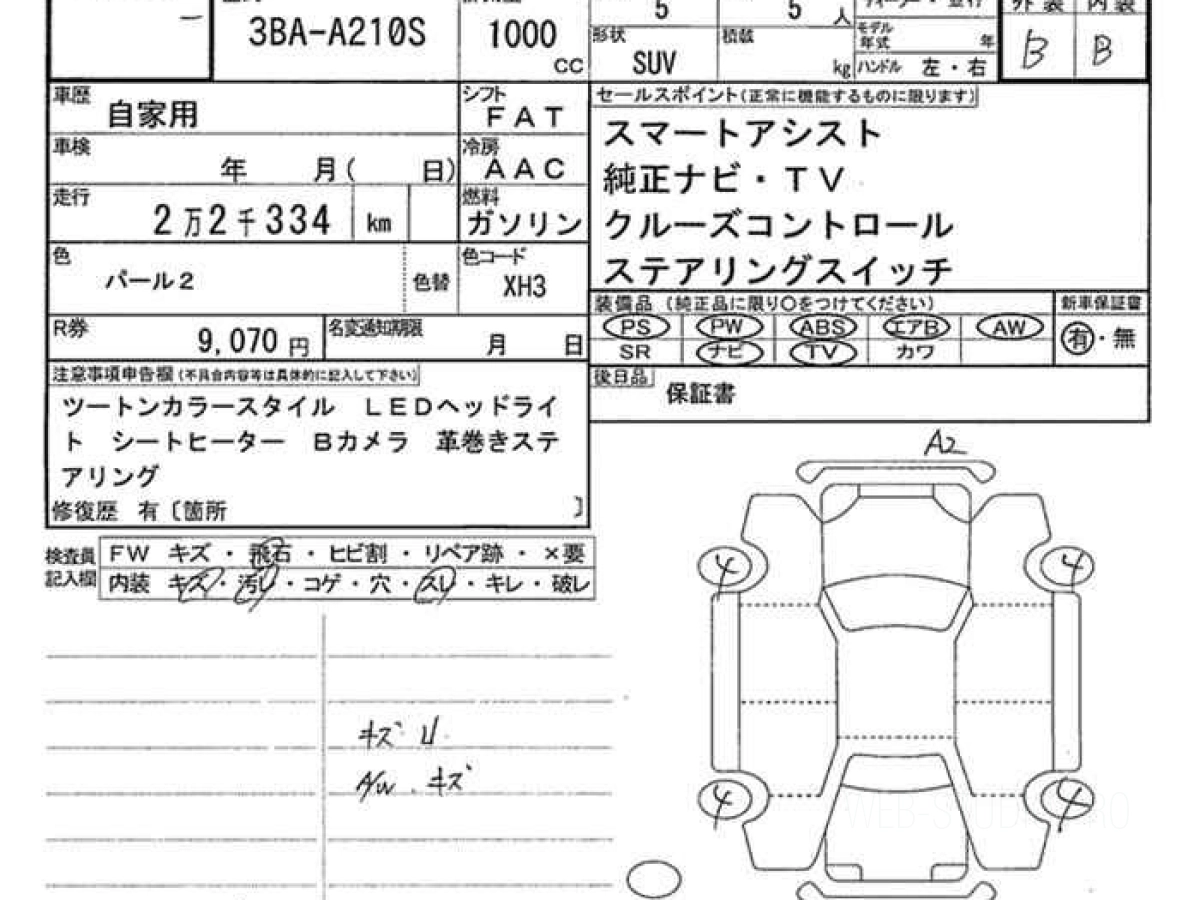 3BA-A210S
1000
CC
5
5
人
形状
SUV
積載
kg
モデル
年式
年
ハンドル 左・右
外装 内装
B B
車歴
自家用
シフト
FAT
車検
年 月( 日)
冷房
AAC
走行
2万2千334 km
燃料
ガソリン
色
パール2
色替
色コード
XH3
R券
9,070 円
名変通知期限
月 日
セールスポイント(正常に機能するものに限ります)
スマートアシスト
純正ナビ・TV
クルーズコントロール
ステアリングスイッチ
装備品 (純正品に限り〇をつけてください)
新車保証書
PS PW ABS エアB AW
SR ナビ TV カワ
有・無
後日品
保証書
注意事項申告欄(不具合内容等は具体的に記入して下さい)
ツートンカラースタイル LEDヘッドライ
ト シートヒーター Bカメラ 革巻きステ
アリング
修復歴 有〔箇所 〕
検査員
記入欄
FW キズ・飛石・ヒビ割・リペア跡・×要
内装 キズ・汚レ・コゲ・穴・スレ・キレ・破レ
キズ U
A/W. キズ
A2
4 4
4 4